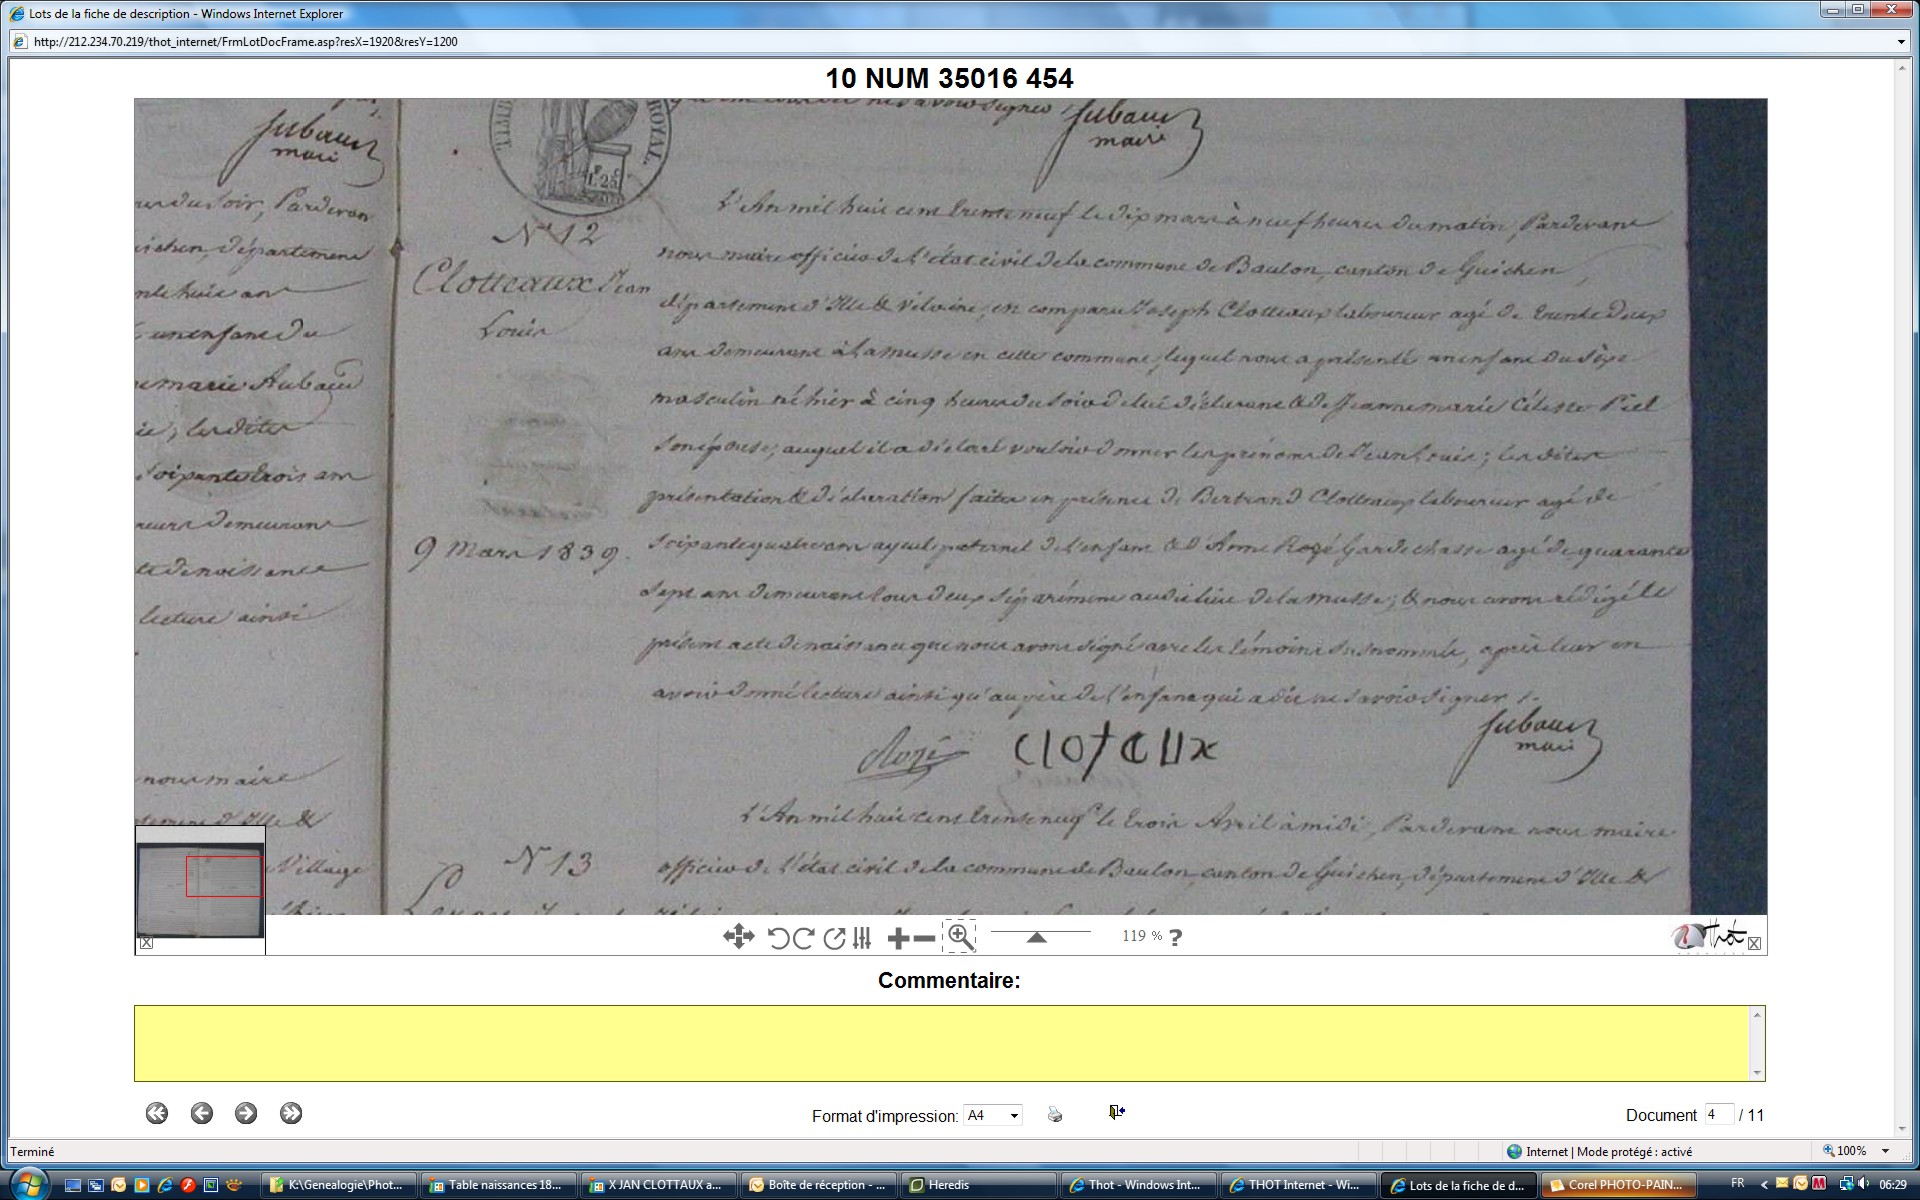 Lots de la fiche de description - Windows Internet Explorer
http://212.234.70.219/thot_internet/FrmLotDocFrame.asp?resX=1920&resY=1200
10 NUM 35016 454
qui ont ne savoir signer
Jubault
maire
Jubault
maire
ROYAL.
TIMB
L 25
res du soir, Pardevan
uichen, département
nte huit an
unenfant du
marie Aubaud
les dites
soixante trois ans
demeurant
te de naissance
lecture ainsi
nous maire
d'Ille &
Village
N° 12
Clotteaux Jean
Louis
9 Mars 1839.
L'An mil huit cent trente neuf le dix mars à neuf heures du matin, Pardevant
nous maire officier de l'état civil de la commune de Baulon, canton de Guichen,
département d'Ille & Vilaine, en comparu Joseph Clotteaux laboureur agé de trente deux
ans demeurant à la musse en cette commune, lequel nous a présenté un enfant du sèxe
masculin né hier à cinq heures du soir de lui déclarant & de Jeanne marie Céleste Piel
son épouse, auquel il a déclaré vouloir donner les prénoms de Jean Louis; les dites
présentation & déclaration faites en présence de Bertrand Clotteaux laboureur agé de
soixante quatre ans ayeul paternel de l'enfant & d'Anne Rozé Garde chasse agé de quarante
sept ans demeurant tous deux séparément audit lieu de la musse; & nous avons rédigé le
présent acte de naissance que nous avons signé avec les témoins susnommés, après leur en
avoir donné lecture ainsi qu'au père de l'enfant qui a dit ne savoir signer
Rozé
ClotaUx
Jubault
maire
N° 13
L'An mil huit cent trente neuf le trois Avril à midi, Pardevant nous maire
officier de l'état civil de la commune de Baulon, canton de Guichen, département d'Ille &
119 % ?
Thot
Commentaire:
Format d'impression: A4
Document 4 / 11
Terminé
Internet | Mode protégé : activé
100%
K:\Genealogie\Phot...
Table naissances 18...
X JAN CLOTTAUX a...
Boîte de réception - ...
Heredis
Thot - Windows Int...
THOT Internet - Wi...
Lots de la fiche de d...
Corel PHOTO-PAIN...
FR
06:29